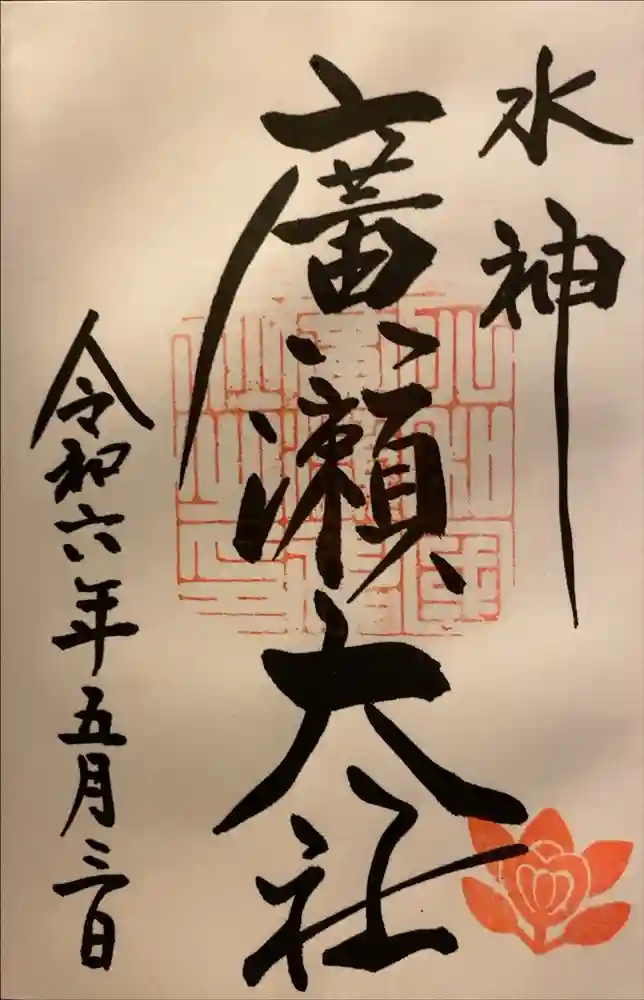 水神
廣瀬大社
令和六年五月三日